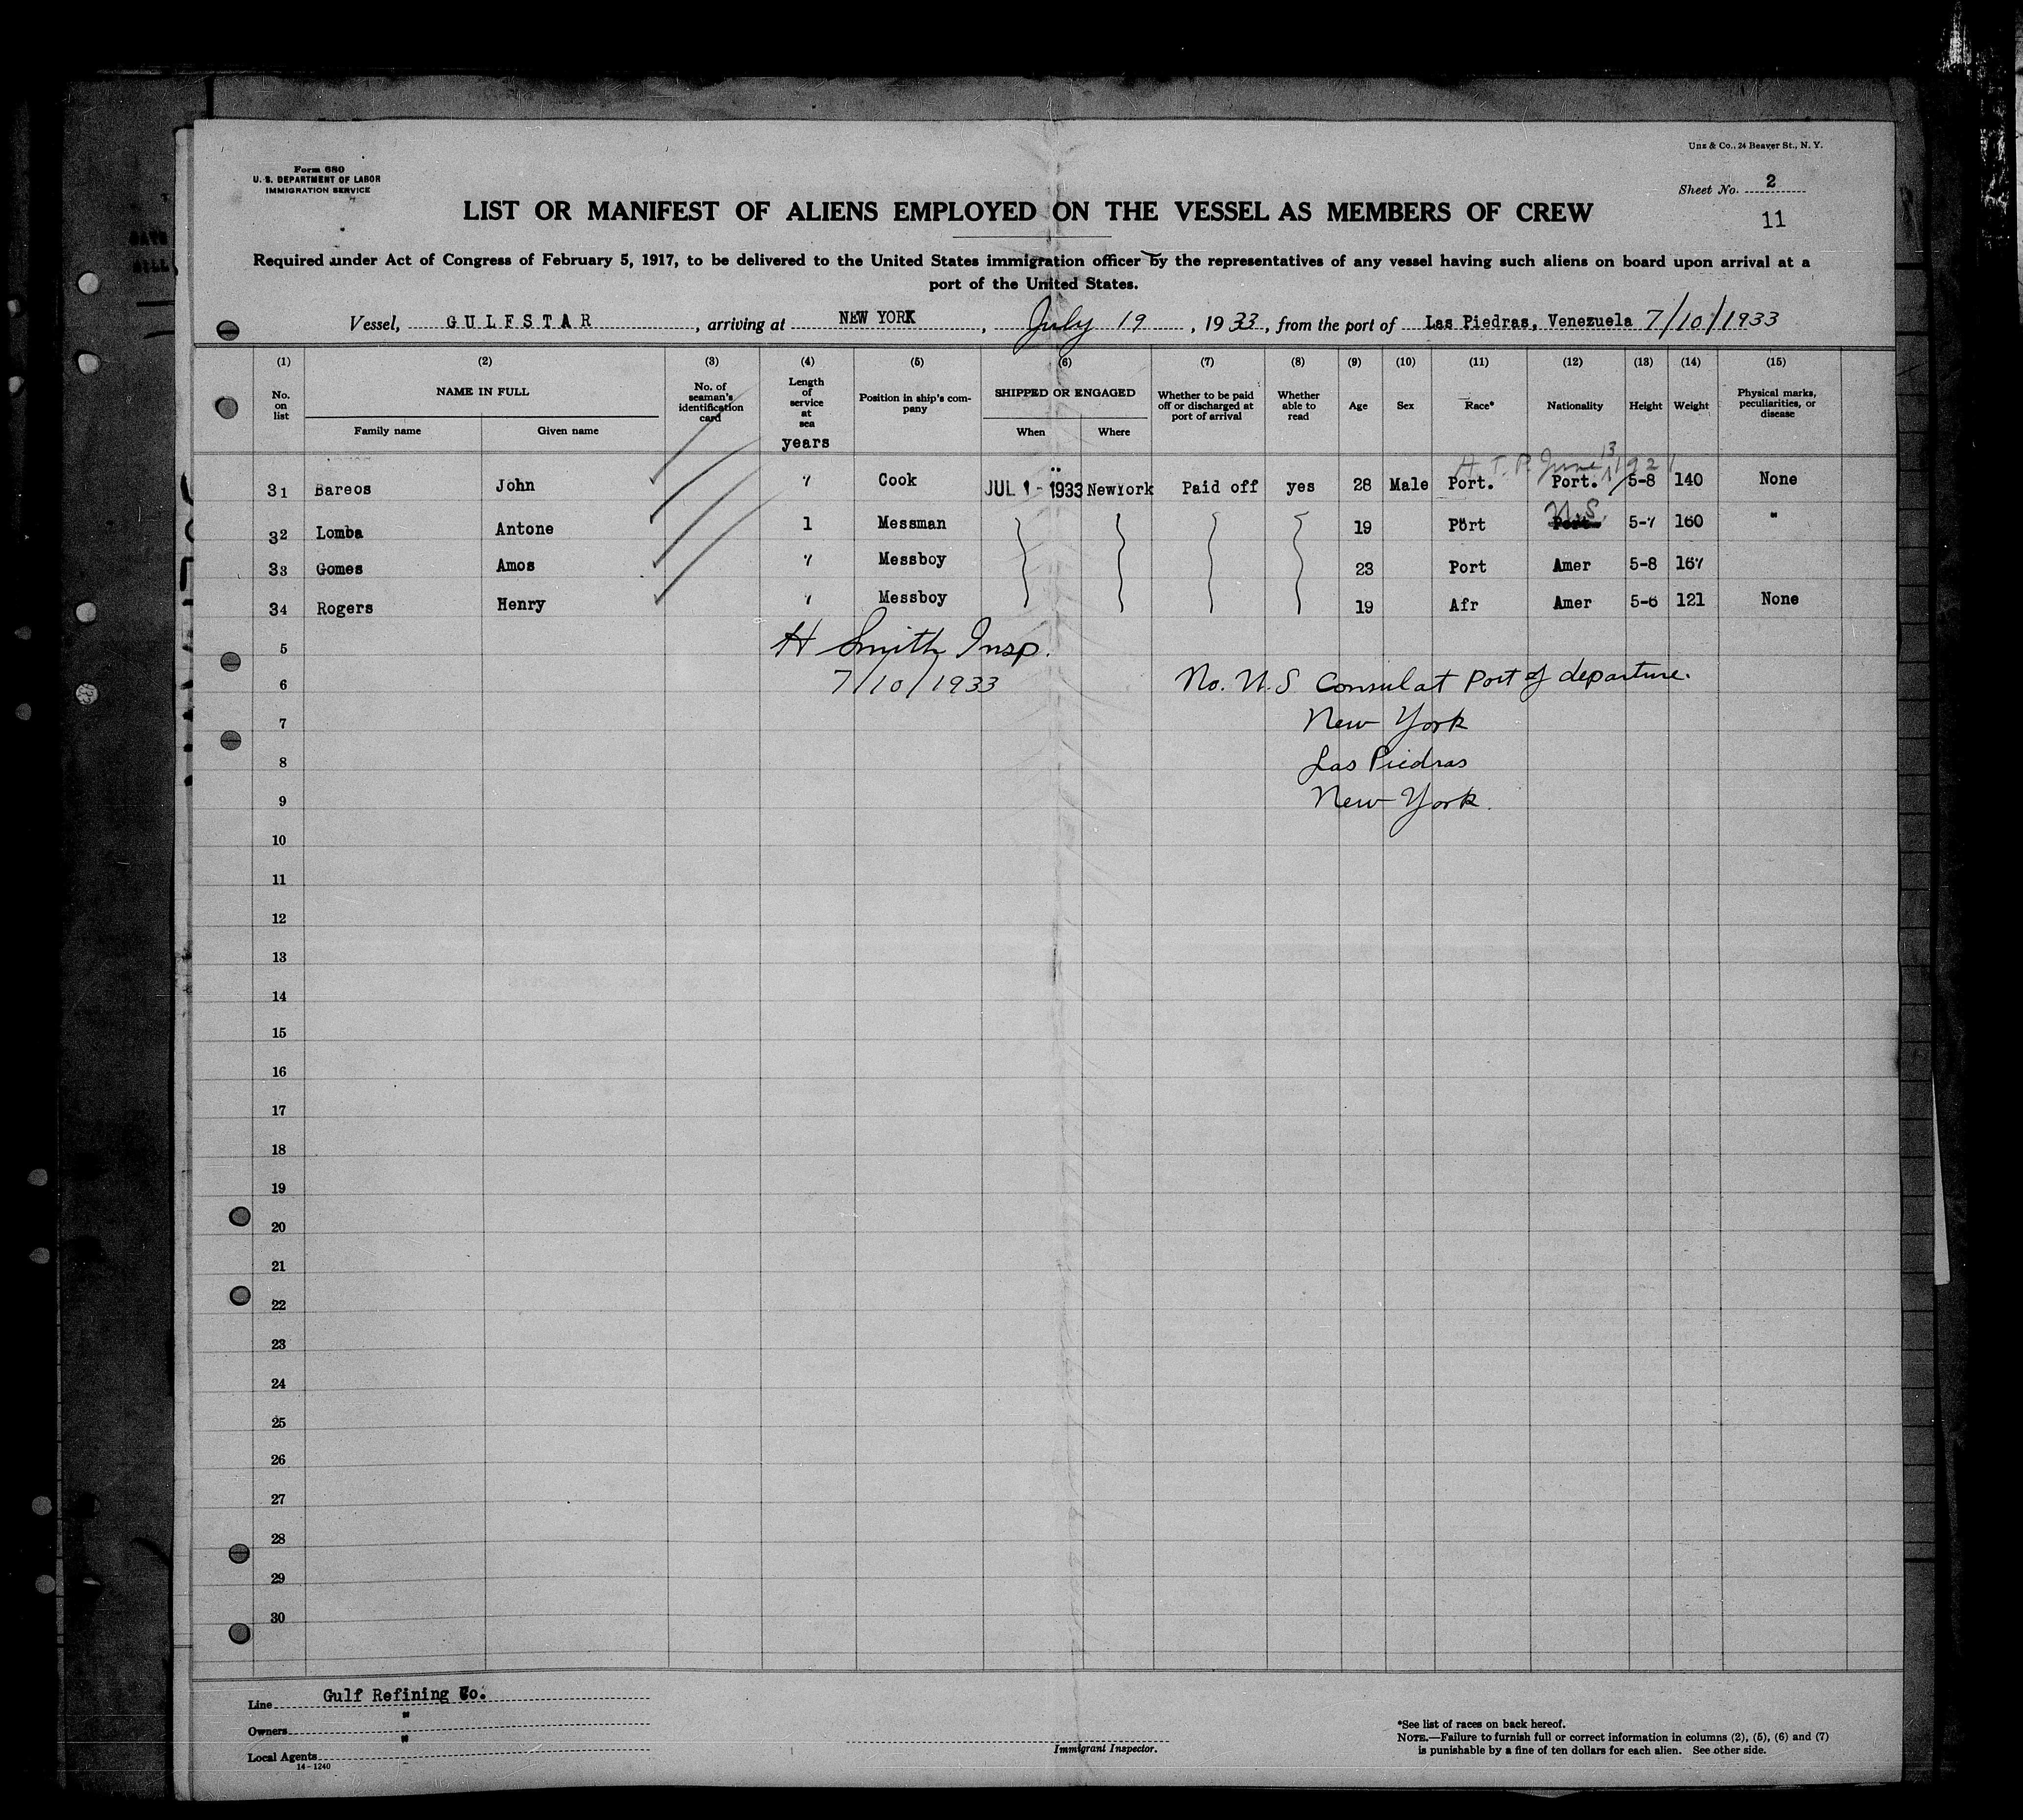 Form 680
U. S. DEPARTMENT OF LABOR
IMMIGRATION SERVICE
Unz & Co., 24 Beaver St., N. Y.
Sheet No. 2
11
LIST OR MANIFEST OF ALIENS EMPLOYED ON THE VESSEL AS MEMBERS OF CREW
Required under Act of Congress of February 5, 1917, to be delivered to the United States immigration officer by the representatives of any vessel having such aliens on board upon arrival at a
port of the United States.
Vessel, GULFSTAR, arriving at NEW YORK, July 19, 1933, from the port of Las Piedras, Venezuela 7/10/1933
(1) (2) (3) (4) (5) (6) (7) (8) (9) (10) (11) (12) (13) (14) (15)
No. on list
NAME IN FULL
Family name
Given name
No. of seaman's identification card
Length of service at sea
years
Position in ship's company
SHIPPED OR ENGAGED
When
Where
Whether to be paid off or discharged at port of arrival
Whether able to read
Age
Sex
Race*
Nationality
Height
Weight
Physical marks, peculiarities, or disease
June 13 1921
31 Bareos John 7 Cook JUL 1 - 1933 NewYork Paid off yes 28 Male Port. Port. 5-8 140 None
U.S.
32 Lomba Antone 1 Messman 19 Port Port 5-7 160 "
33 Gomes Amos 7 Messboy 23 Port Amer 5-8 167
34 Rogers Henry 7 Messboy 19 Afr Amer 5-6 121 None
5 H Smith Insp.
6 7/10/1933 No. U.S Consul at port of departure.
7 New York
8 Las Piedras
9 New York.
10
11
12
13
14
15
16
17
18
19
20
21
22
23
24
25
26
27
28
29
30
Line Gulf Refining Co.
Owners "
Local Agents "
14-1240
Immigrant Inspector.
*See list of races on back hereof.
NOTE.—Failure to furnish full or correct information in columns (2), (5), (6) and (7)
is punishable by a fine of ten dollars for each alien. See other side.